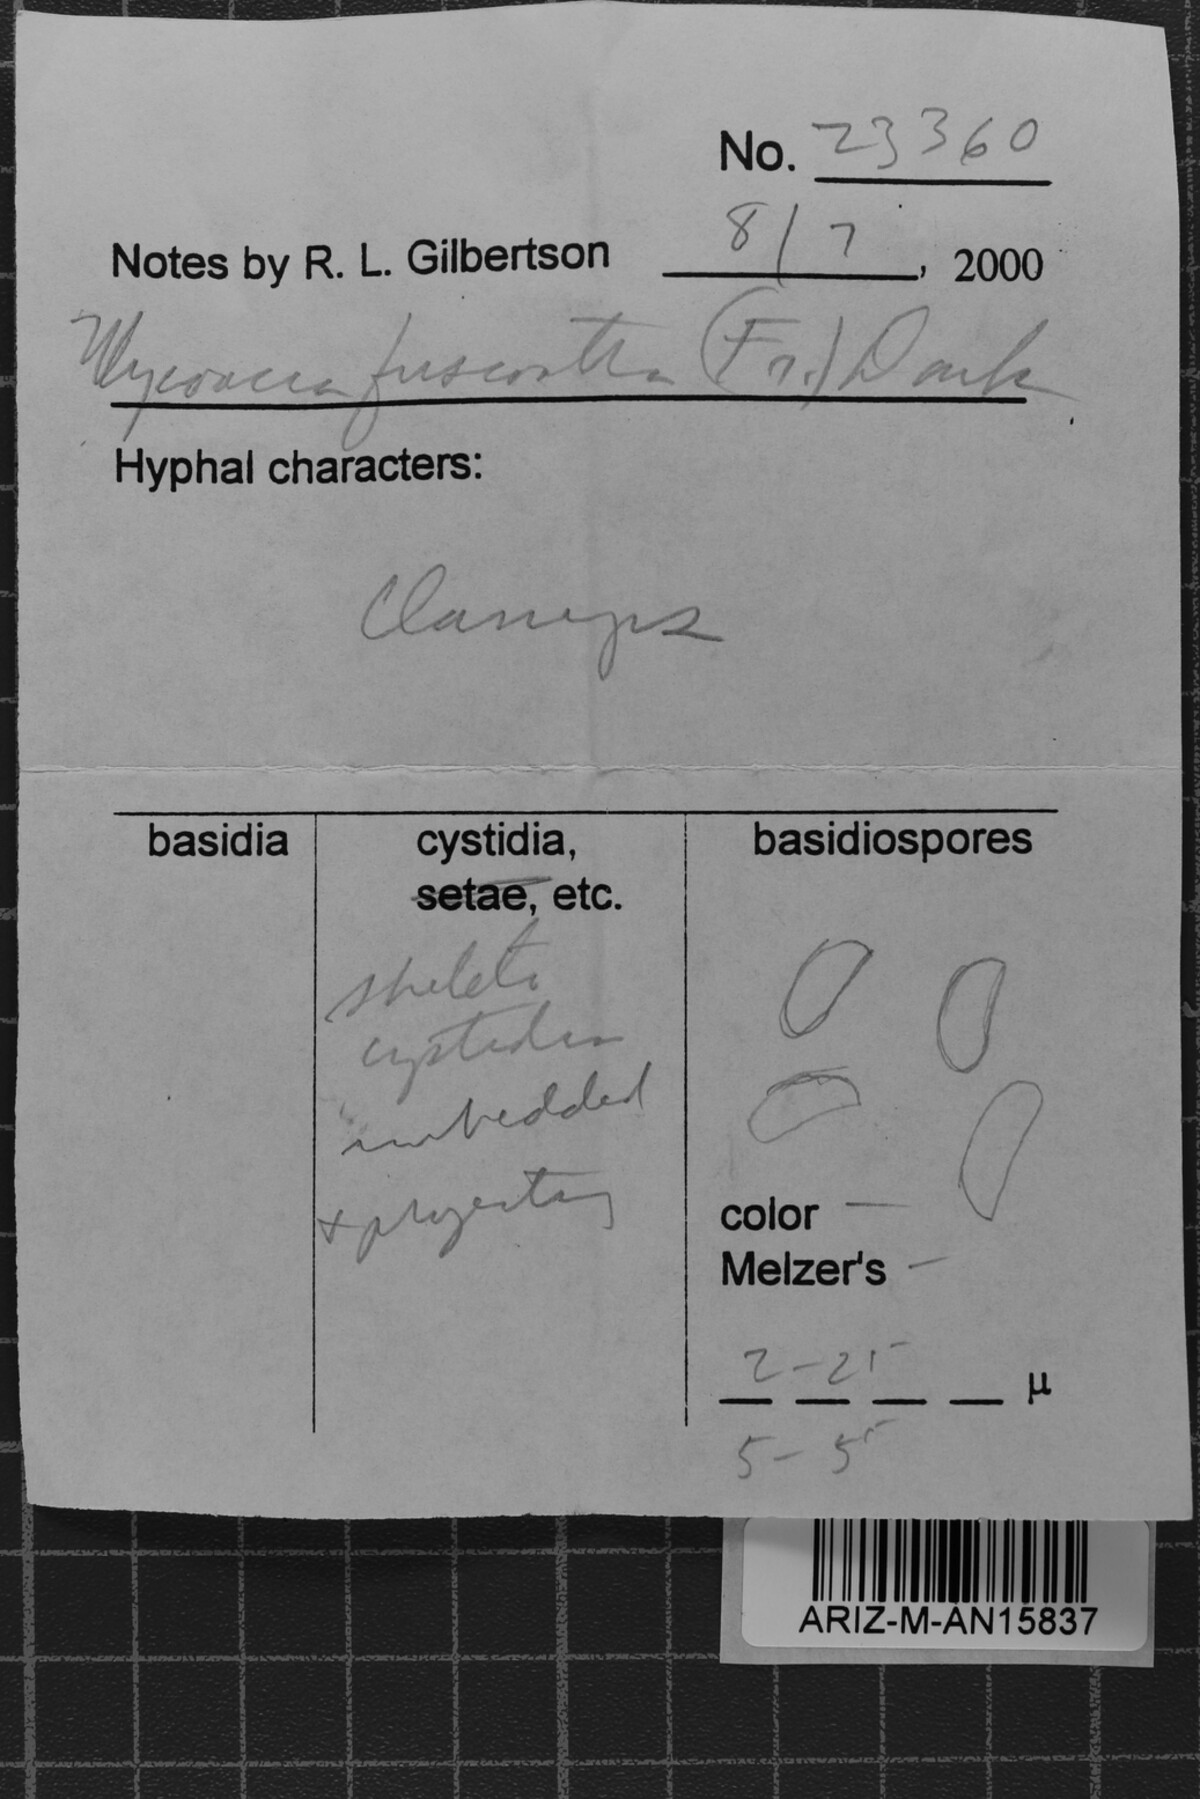 No. 23360
Notes by R. L. Gilbertson 8/7, 2000
Mycoacia fuscoatra (Fr.) Donk
Hyphal characters:
Clamps
basidia
cystidia,
setae, etc.
skeleto
cystidia
imbedded
+ projecting
basidiospores
color —
Melzer's —
2-25
µ
5-55
ARIZ-M-AN15837